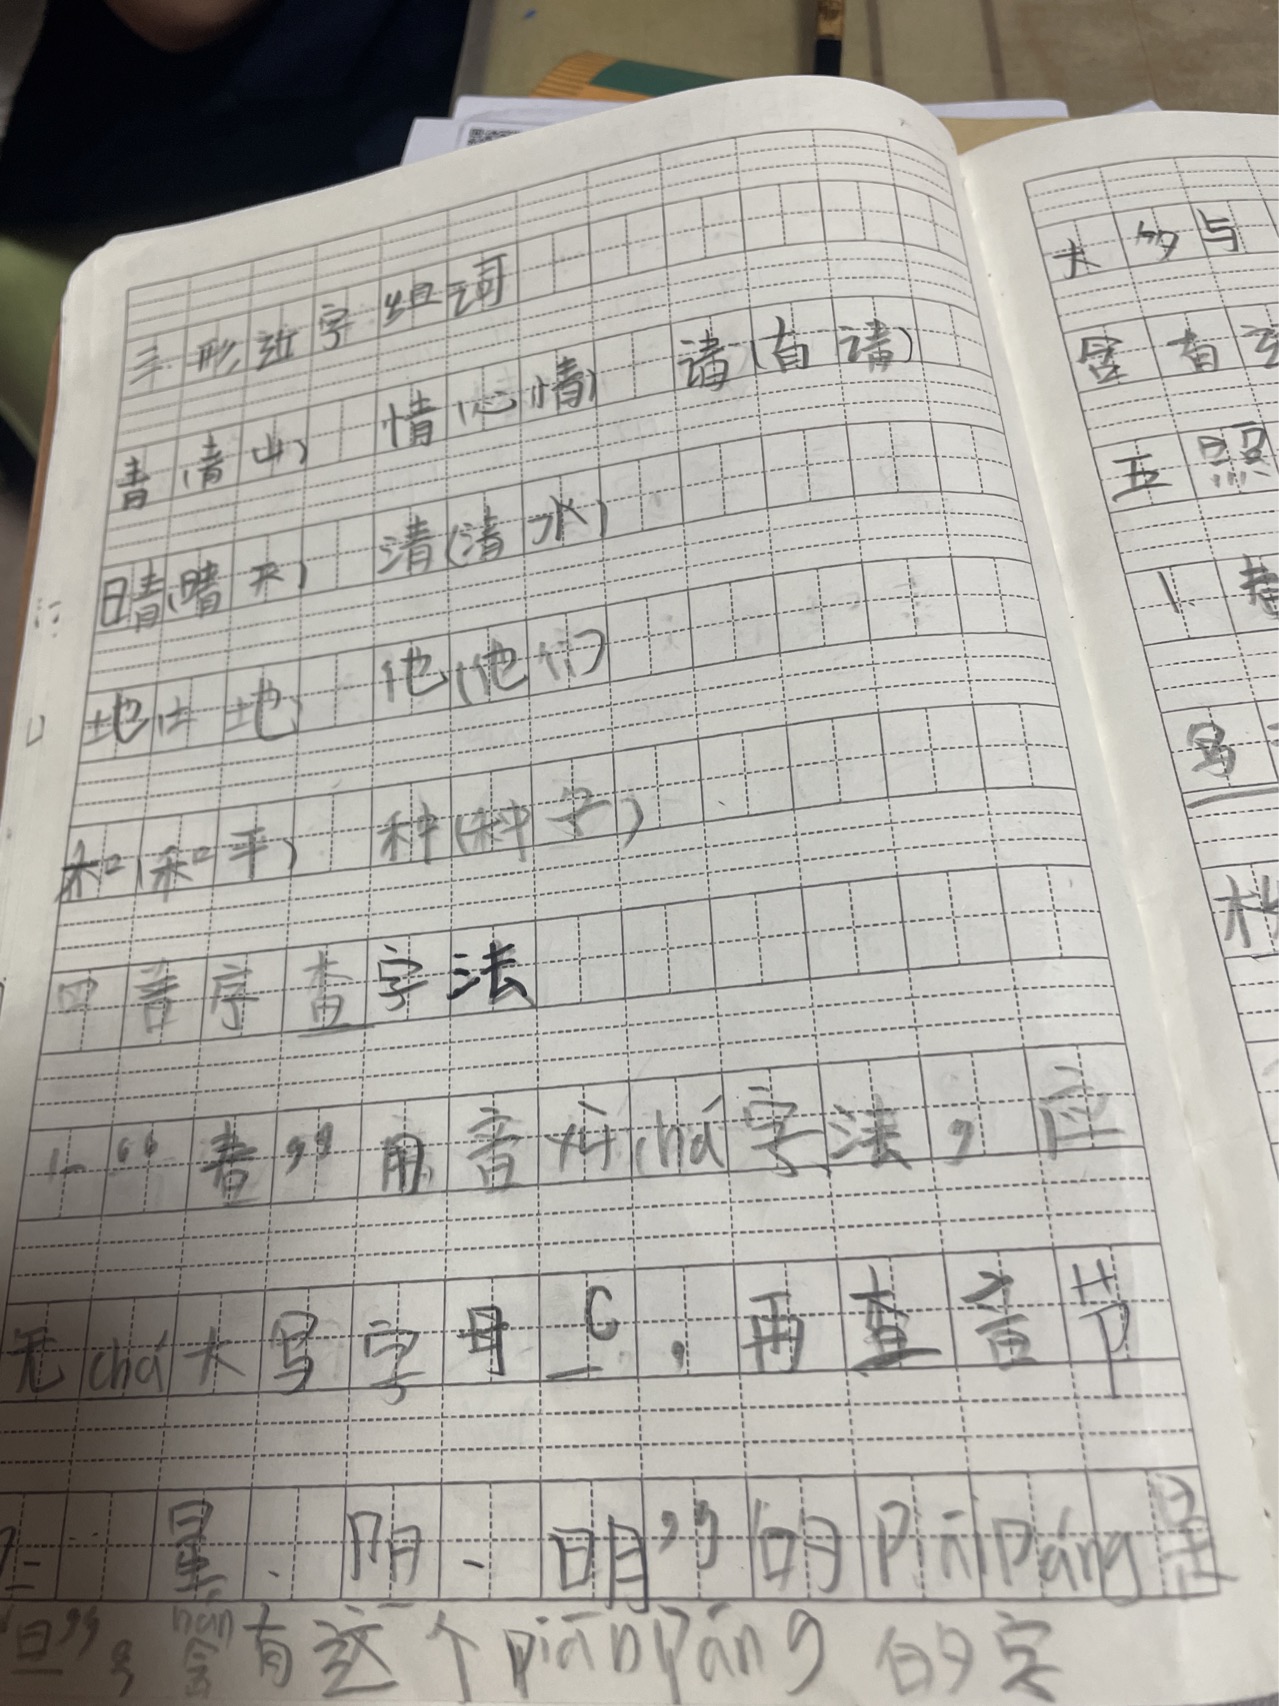 三形近字组词
青(青山) 情(心情) 请(有请)
晴(晴天) 清(清水)
地(土地) 他(他们)
和(和平) 种(种子)
四音序查字法
1、“春”用音xùchá字法，应
先chá大写字母C，再查音节
星、阴、明”的piānpáng是
“日”，hán含有这个piānpáng的字
大多与
含有
五照
1、
写